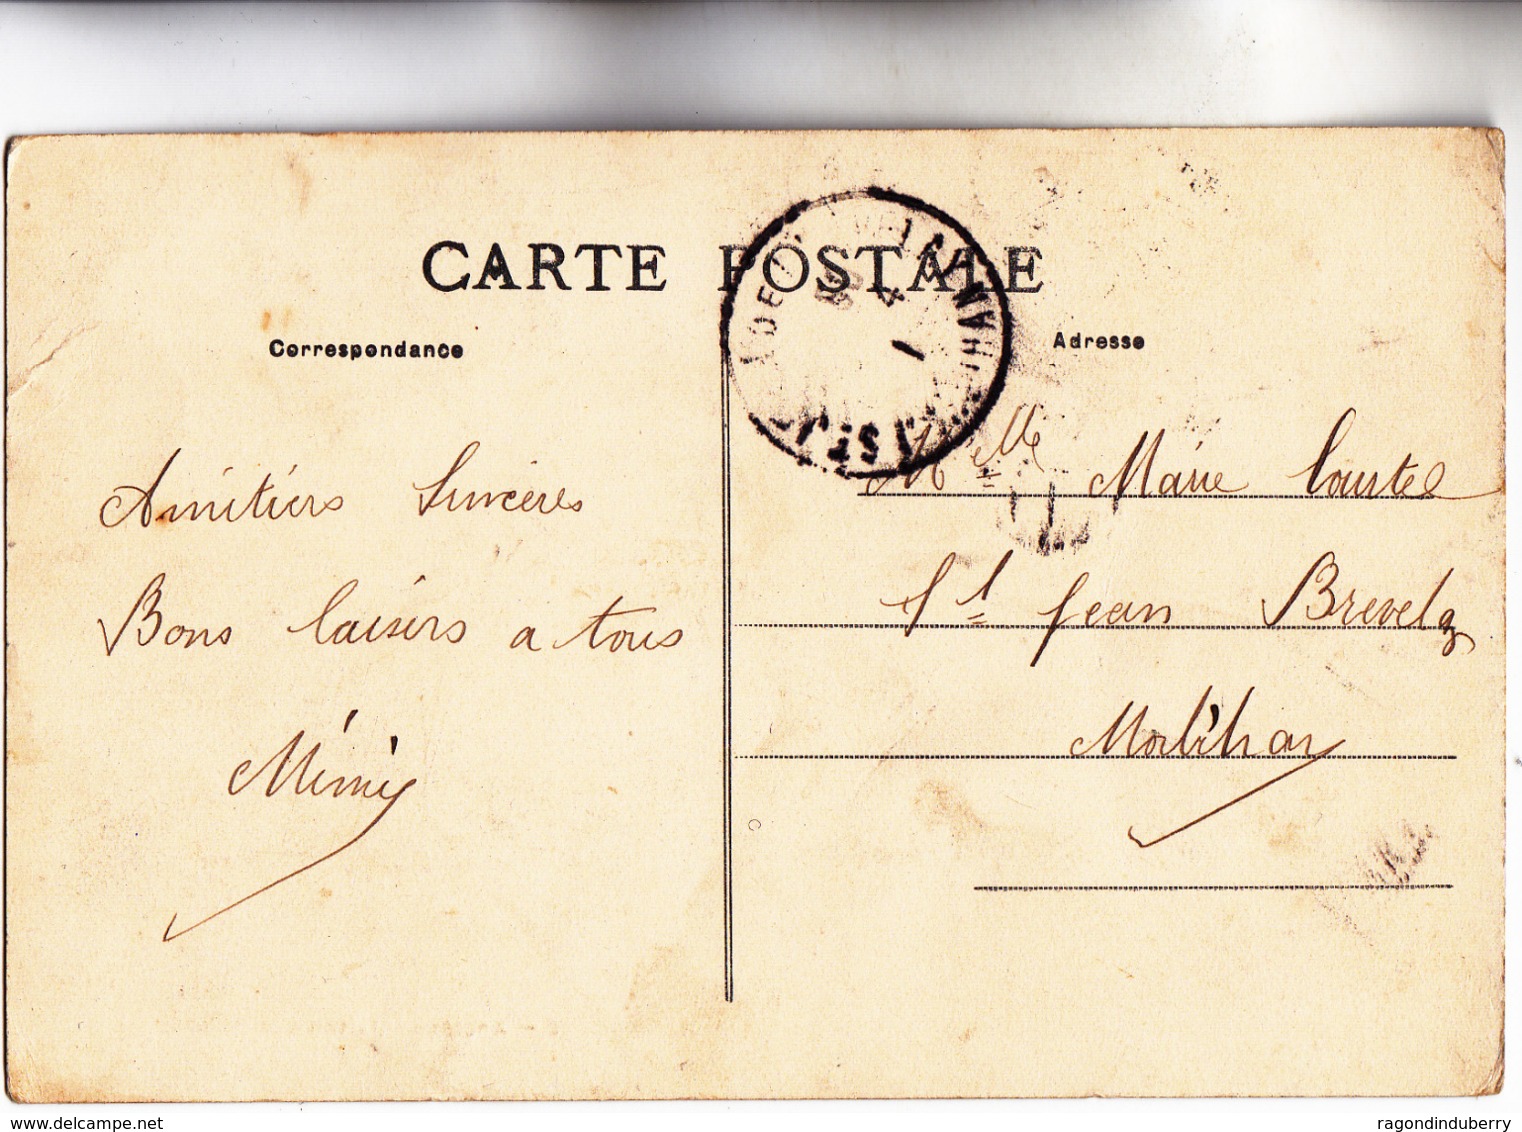 CARTE POSTALE
Correspondance
Adresse
Amitiers Sincères
Bons baisers a tous
Mimi
Melle Marie Courtel
St Jean Brevelay
Morbihan
www.delcampe.net
ragondinduberry